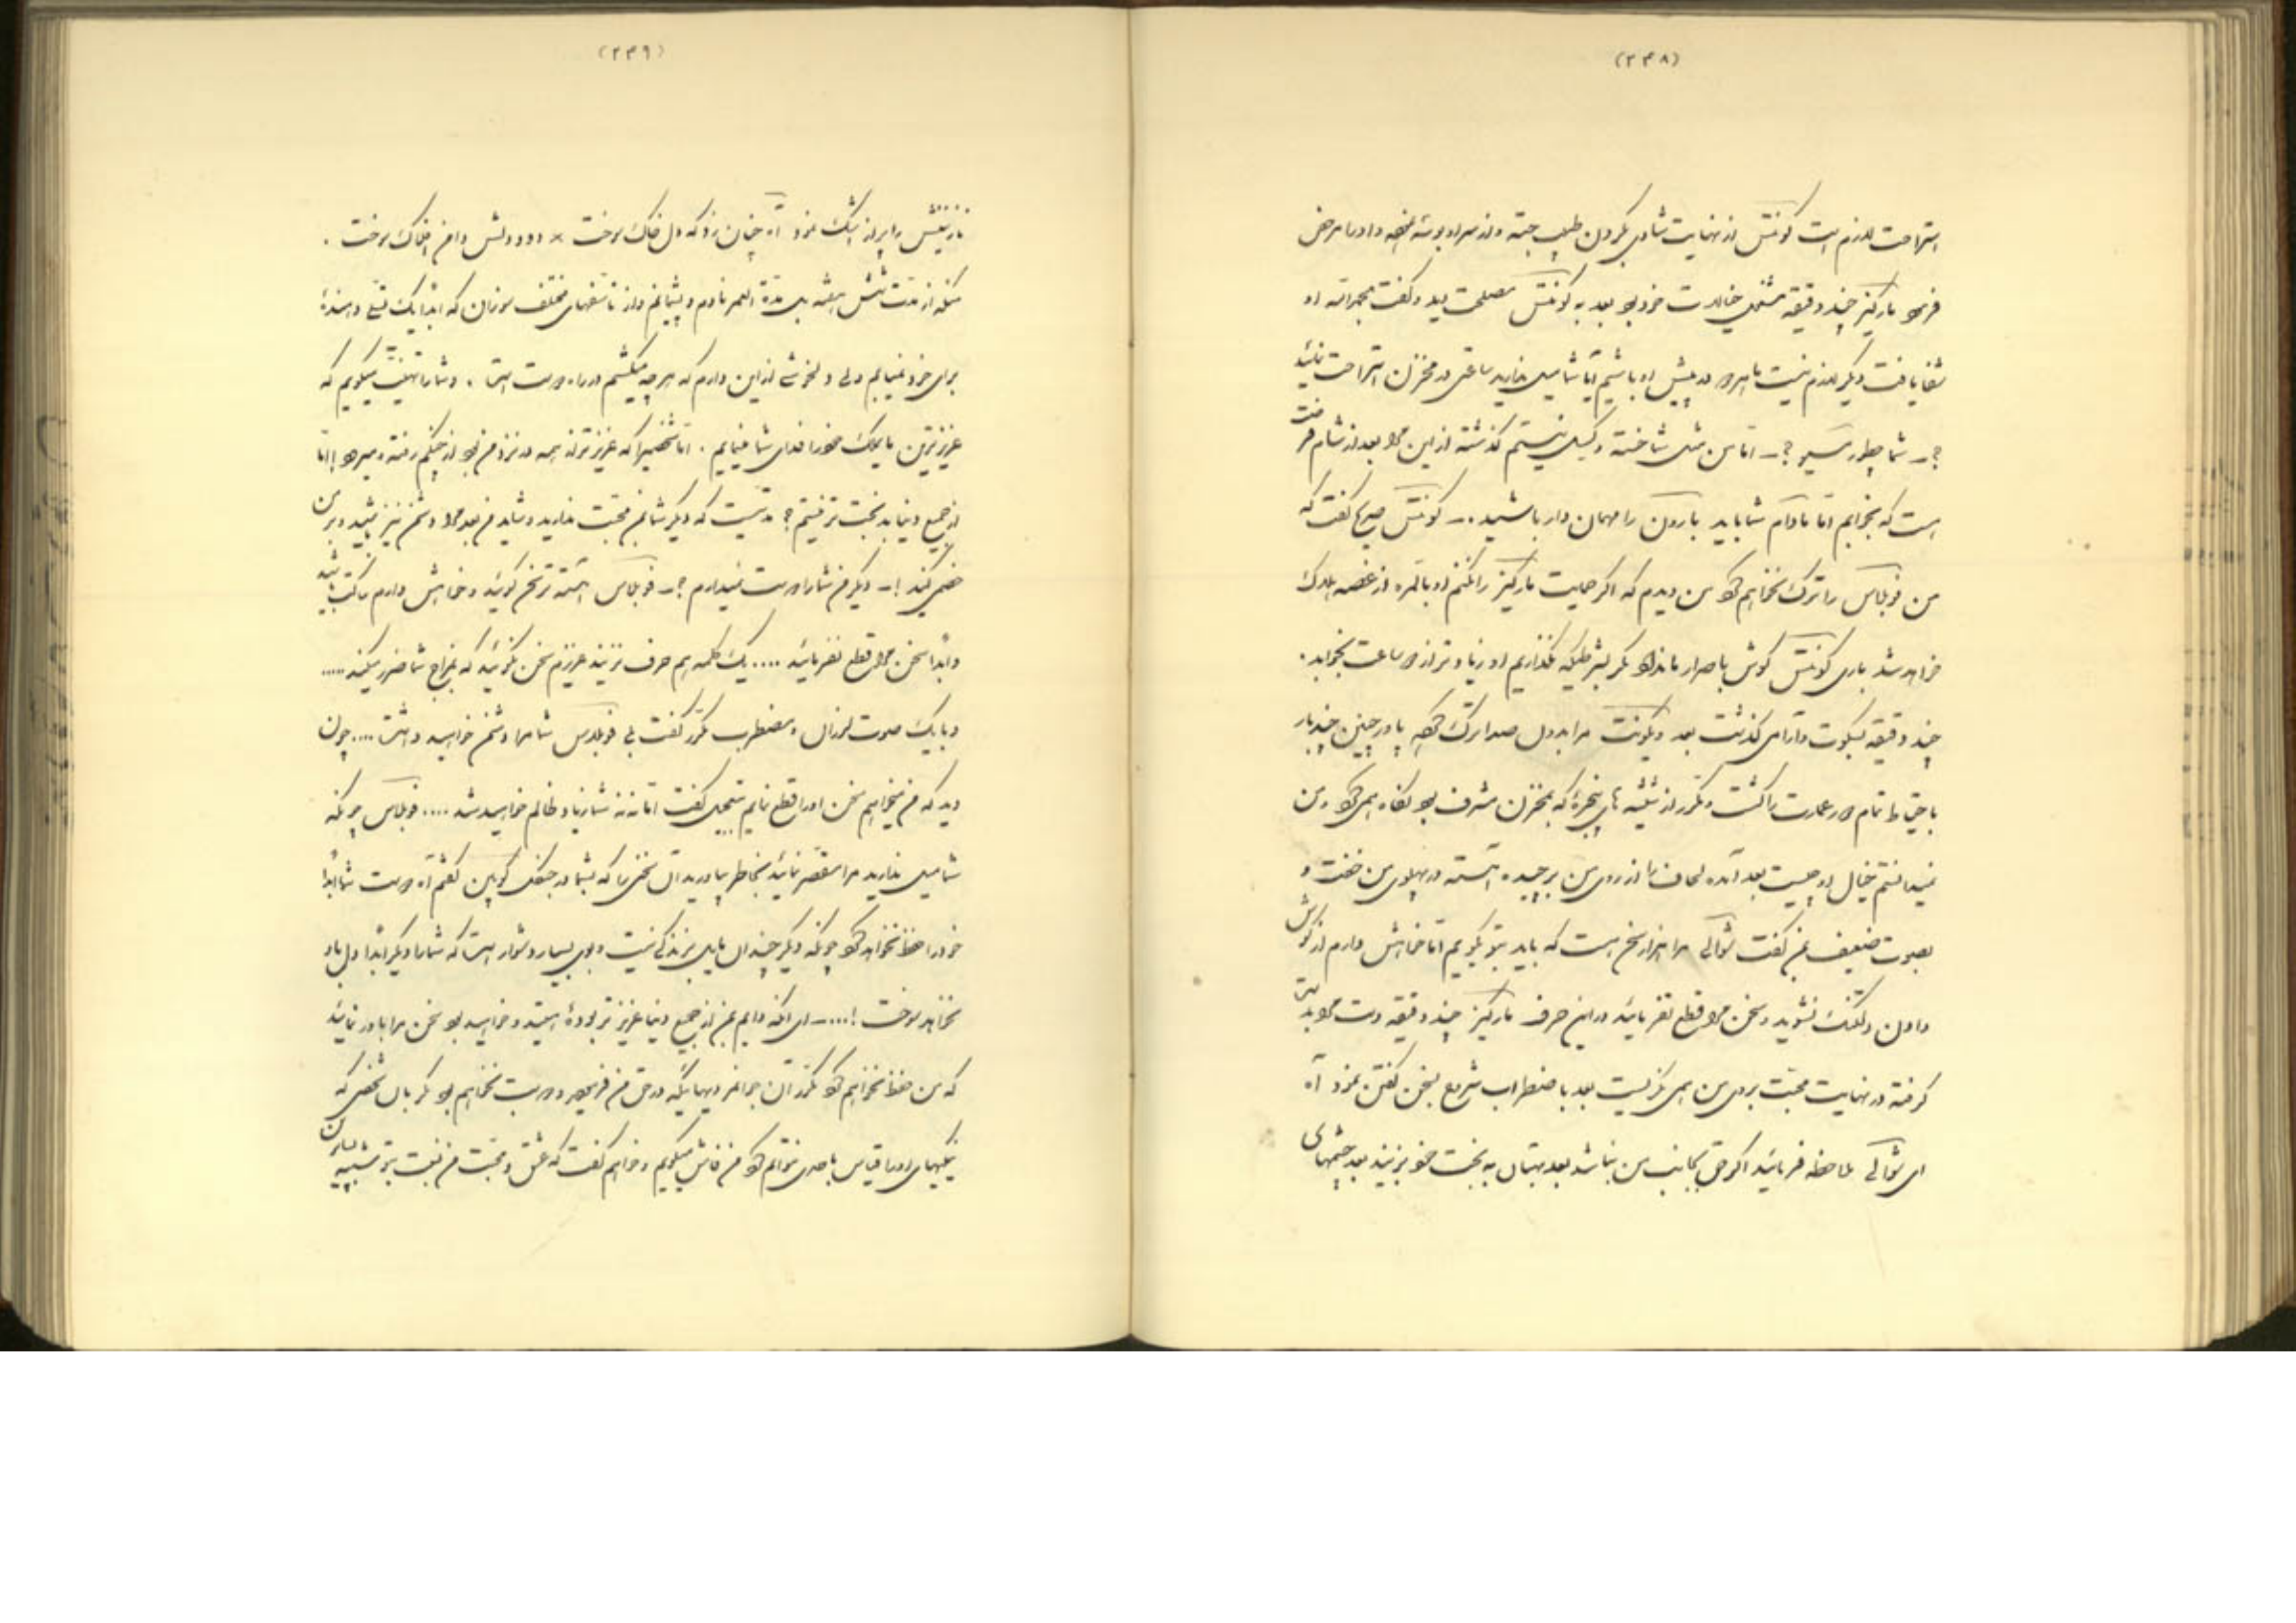 (۲۳۸)
استراحت لازم است کونتس از نهایت شادی بگردن طبیب جسته و از سر او بوسه نموده و او را مرخص
فرمود مارکیز چند دقیقه مشغول خیالات خود بود بعد به کونتس مصلحت دید و گفت بحمدالله او
شفا یافت دیگر لازم نیست ما هر دو در پیش او باشیم آیا شما میل ندارید ساعتی در مخزن استراحت نمائید
؟ــ شما چطور ؟ــ اما من مثل شما خسته و کسل نیستم گذشته از این مرا بعد از شام فرصت
است که بخوابم اما مادام شما باید بارون را مهمان دار باشید .ــ کونتس صریح گفت که
من فوبلاس را ترک نخواهم کرد من دیدم که اگر حمایت مارکیز را نکنم او بالمره از غصه هلاک
خواهد شد باری کونتس گوش باصرار ما نداد مگر بشرطیکه نگذاریم او زیادتر از دو ساعت بخوابد .
چند دقیقه بسکوت و آرامی گذشت بعد ویکونت مرا بدون صدا ترک کرده پاورچین چند بار
باحتیاط تمام دور عمارت را گشت و مکرر از شیشه های پنجره که بمخزن مشرف بود نگاه همی کرد و من
نمیدانستم خیال او چیست بعد آمده لحاف را از روی من برچیده آهسته در پهلوی من خفت و
بصوت ضعیف بمن گفت شوالی مرا هزار سخن است که باید بتو بگویم اما خواهش دارم از گوش
دادن دلتنگ نشوید و سخن مرا قطع نفرمائید در این حرف مارکیز چند دقیقه دست مرا بدست
گرفته در نهایت محبت بروی من همی نگریست بعد با اضطراب شروع بسخن گفتن نمود آه
ای شوالی ملاحظه فرمائید اگر حق بجانب من نباشد بعد بهتان به بخت خود بزنید بعد چشمهای
(۲۳۹)
نازنینش را پر از اشک نمود آه چنان زد که دل خاک سوخت × دود دلش دامن افلاک سوخت .
منکه از مدت شش هفته بل مدة العمر نادم و پشیمانم و از تأسفهای مختلف سوزان که ابداً یک تسلی دهندهٔ
برای خود نمییابم ولی دلخوشی از این دارم که هر چه میکشم در راه دوست است . و شما را تهنیت میگویم که
عزیزترین مایملک خود را فدای شما مینمایم . اما شخصیرا که عزیزتر از همه در نزد من بود از چنگم رفته و میرود ! اما
از جمیع دنیا بدبخت تر نیستم ؟ مدتیست که دیگر شما بمن محبت ندارید و شاید من بعد مرا دشمن نیز باشید و بر من
خصمی کنید !ــ دیگر من شما را دوست نمیدارم ؟ــ فوبلاس آهسته تر سخن گوئید و خواهش دارم ساکت باشید
و ابداً سخن مرا قطع نفرمائید .... یک کلمه هم حرف نزنید عزیزم سخن نگوئید که بمزاج شما ضرر میکند .....
و با یک صوت لرزان و مضطرب مکرر گفت بلی فوبلاس شما مرا دشمن خواهید داشت .... چون
دید که من میخواهم سخن او را قطع نمایم بتعجیل گفت اما نه نه شما زیاد ظالم خواهید شد .... فوبلاس چونکه
شما میل ندارید مرا مقصر نمائید بخاطر بیاورید آن سخنی را که بشما در جنگل کوپین گفتم آه دوست شما ابداً
خود را حفظ نخواهد کرد چونکه دیگر چندان مایل بزندگی نیست و بوی بسیار دشوار است که شما را دیگر ابداً دل باو
نخواهد سوخت !...ــ ای آنکه دایم بمن از جمیع دنیا عزیزتر بودهٔ هستید و خواهید بود سخن مرا باور نمائید
که من حفظ نخواهم کرد مگر آن جوانمردیهائیکه در حق من فرمودید و دوست نخواهم بود مگر بآن شخص که
نیکیهای او را قیاس با حدی نتوانم کرد من فاش میگویم و خواهم گفت که عشق و محبت من نسبت بتو شبیه بسایرین